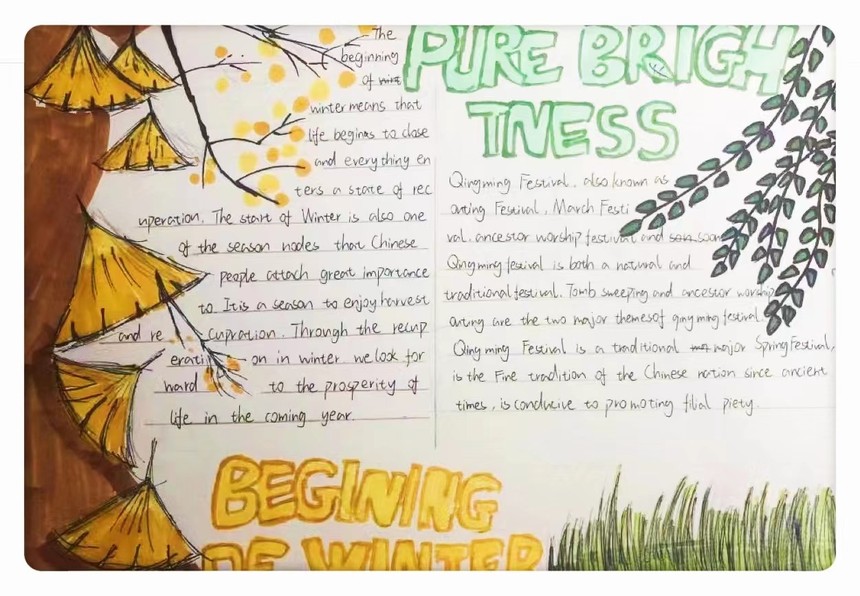 The
beginning
of
winter means that
life begins to close
and everything en
ters a state of rec
uperation. The start of Winter is also one
of the season nodes that Chinese
people attach great importance
to It is a season to enjoy harvest
and re cupration. Through the recup
erati on in winter we look for
ward to the prosperity of
life in the coming year.
BEGINING
OF WINTER
PURE BRIGH
TNESS
Qingming Festival, also known as
outing Festival, March Festi
val, ancestor worship festival and soon
Qingming festival is both a natural and
traditional festival. Tomb sweeping and ancestor worship
outing are the two major themes of qing ming festival.
Qing ming Festival is a traditional major Spring Festival,
is the Fine tradition of the Chinese nation since ancient
times, is conducive to promoting filial piety.